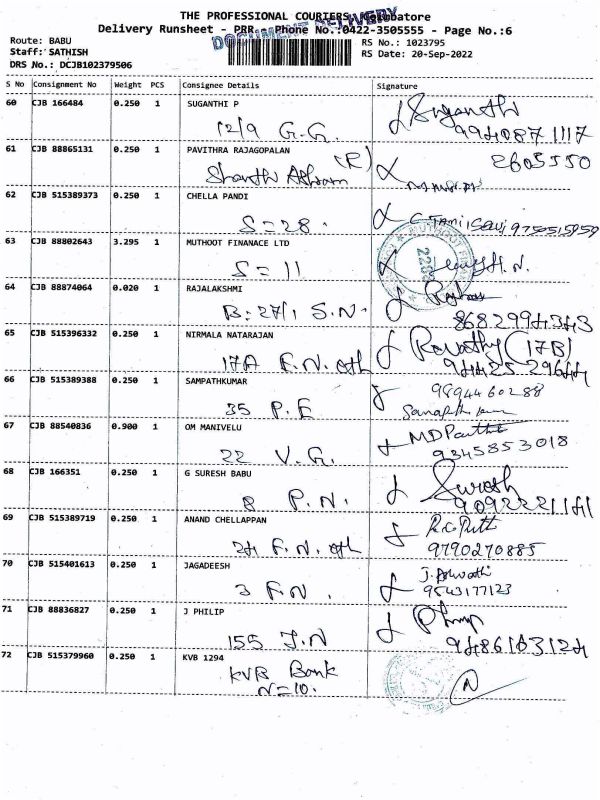 THE PROFESSIONAL COURIERS, Coimbatore
Delivery Runsheet - PRR. Phone No.:0422-3505555 - Page No.:6
DOCUMENT DELIVERY
Route: BABU
RS No.: 1023795
Staff: SATHISH
RS Date: 20-Sep-2022
DRS No.: DCJB102379506
S No Consignment No Weight PCS Consignee Details Signature
60 CJB 166484 0.250 1 SUGANTHI P Suganthi
12/9 G.G. 9940871117
61 CJB 88865131 0.250 1 PAVITHRA RAJAGOPALAN
Shanthi Ashram (R) 2605550
62 CJB 515389373 0.250 1 CHELLA PANDI
S=28.
63 CJB 88802643 3.295 1 MUTHOOT FINANACE LTD
S=11
64 CJB 88874064 0.020 1 RAJALAKSHMI
B:27/1 S.N. 8682994343
65 CJB 515396332 0.250 1 NIRMALA NATARAJAN Revathy (17B)
17A F.N. 9442529644
66 CJB 515389388 0.250 1 SAMPATHKUMAR 9894460288
35 P.E
67 CJB 88540836 0.900 1 OM MANIVELU MD
22 V.G. 9345853018
68 CJB 166351 0.250 1 G SURESH BABU Suresh
8 P.N. 9092221141
69 CJB 515389719 0.250 1 ANAND CHELLAPPAN
24 F.N. 9790270885
70 CJB 515401613 0.250 1 JAGADEESH J. Aswathi
3 F.N. 9543177123
71 CJB 88836827 0.250 1 J PHILIP
155 J.N 9486103124
72 CJB 515379960 0.250 1 KVB 1294
KVB Bank
N=10.